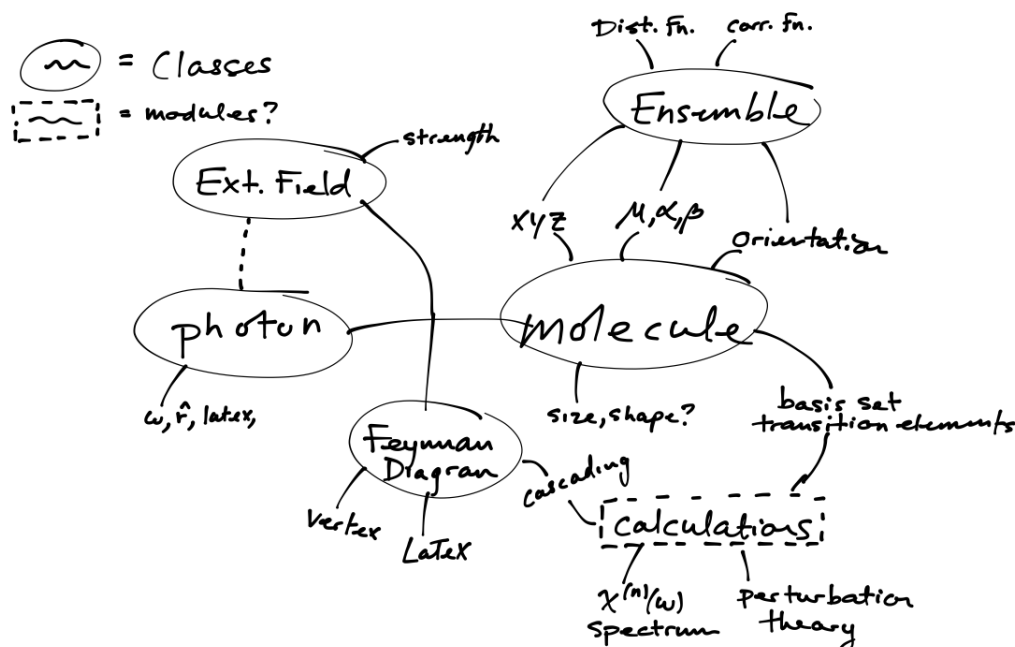 = Classes
= modules?
Dist. Fn. corr. Fn.
Ensumble
strength
Ext. Field
XYZ
μ, α, β
orientation
photon
molecule
ω, r̂, latex,
size, shape?
basis set
transition elements
Feynman
Diagran
cascading
vertex
LaTeX
calculations
χ⁽ⁿ⁾(ω)
spectrum
perturbation
theory